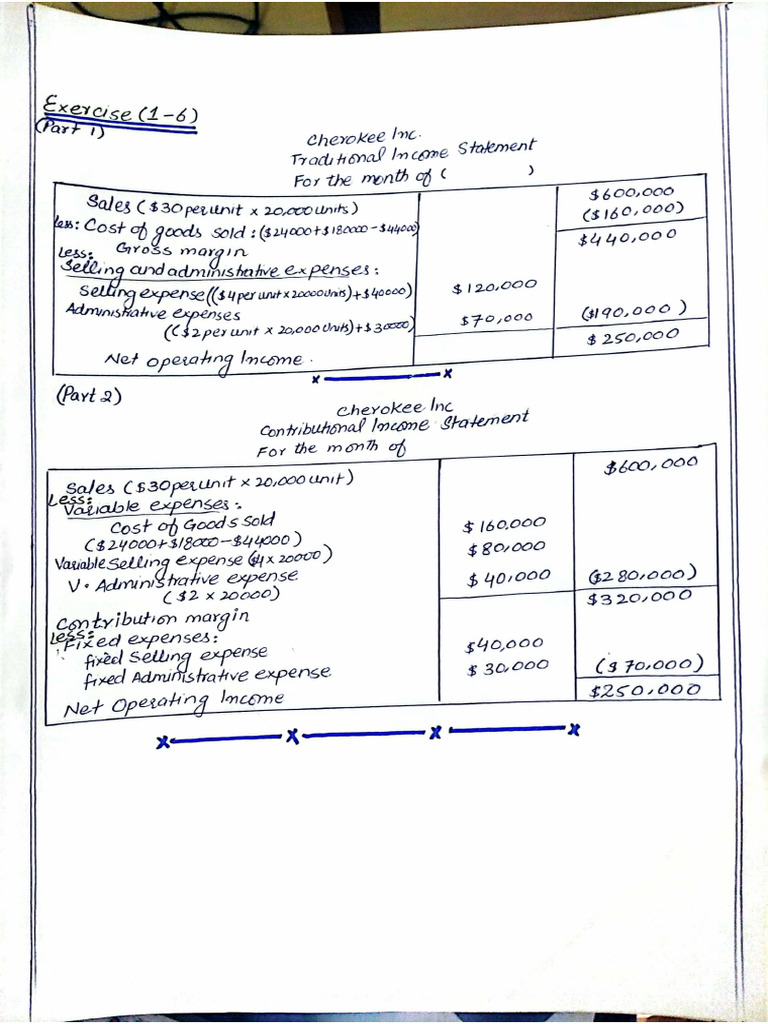 Exercise (1-6)
(Part 1)
Cherokee Inc.
Traditional Income Statement
For the month of ( )
Sales ($30 per unit × 20,000 units) $600,000
Less: Cost of goods sold: ($24000+$180000-$44000) ($160,000)
Gross margin $440,000
Less:
Selling and administrative expenses:
Selling expense (($4 per unit × 20000 units)+$40000) $120,000
Administrative expenses
(($2 per unit × 20,000 units)+$30000) $70,000 ($190,000)
Net Operating Income. $250,000
x x
(Part 2)
Cherokee Inc
Contributional Income Statement
For the month of
Sales ($30 per unit × 20,000 unit) $600,000
Less:
Variable expenses:
Cost of Goods Sold $160,000
($24000+$18000-$44000)
Variable Selling expense ($4 × 20000) $80,000
V. Administrative expense $40,000 ($280,000)
($2 × 20000)
Contribution margin $320,000
Less:
Fixed expenses:
fixed Selling expense $40,000
fixed Administrative expense $30,000 ($70,000)
Net Operating Income $250,000
x x x x